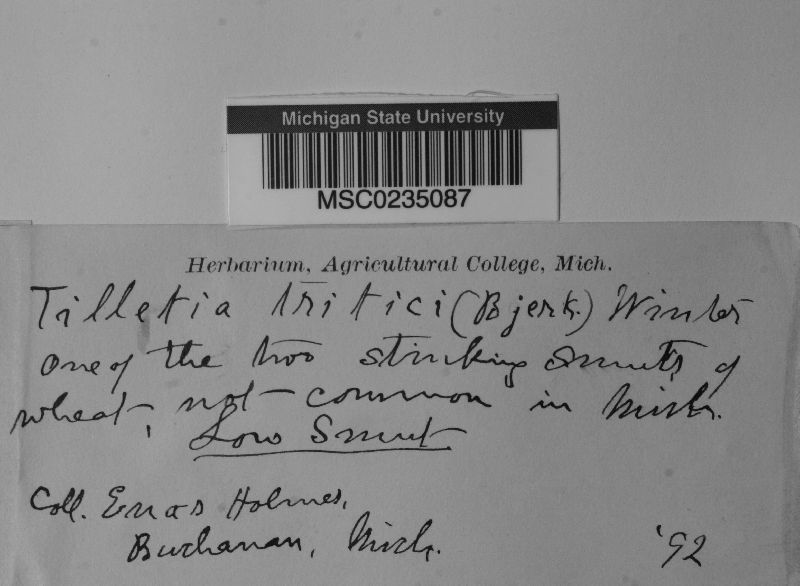 Michigan State University
MSC0235087
Herbarium, Agricultural College, Mich.
Tilletia tritici (Bjerk.) Winter
one of the two stinking smuts of
wheat, not common in Mich.
Low Smut
Coll. Enos Holmes,
Buchanan, Mich. '92